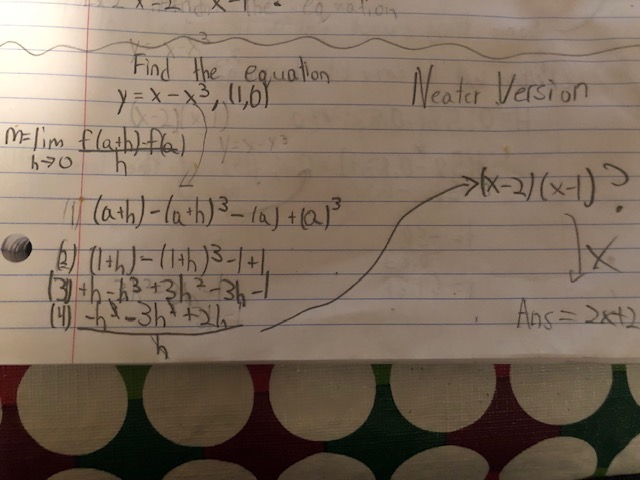 x-2 x-1
Find the equation
y = x - x³, (1,0)
Neater Version
m = lim f(a+h)-f(a)
h→0 h
1) (a+h) - (a+h)³ - (a) + (a)³
→(x-2)(x-1)?
(2) (1+h) - (1+h)³ - 1 + 1
(3) +h - h³ + 3h² - 3h - 1
x
(4) -h³ - 3h² + 2h
h
Ans = 2x+2